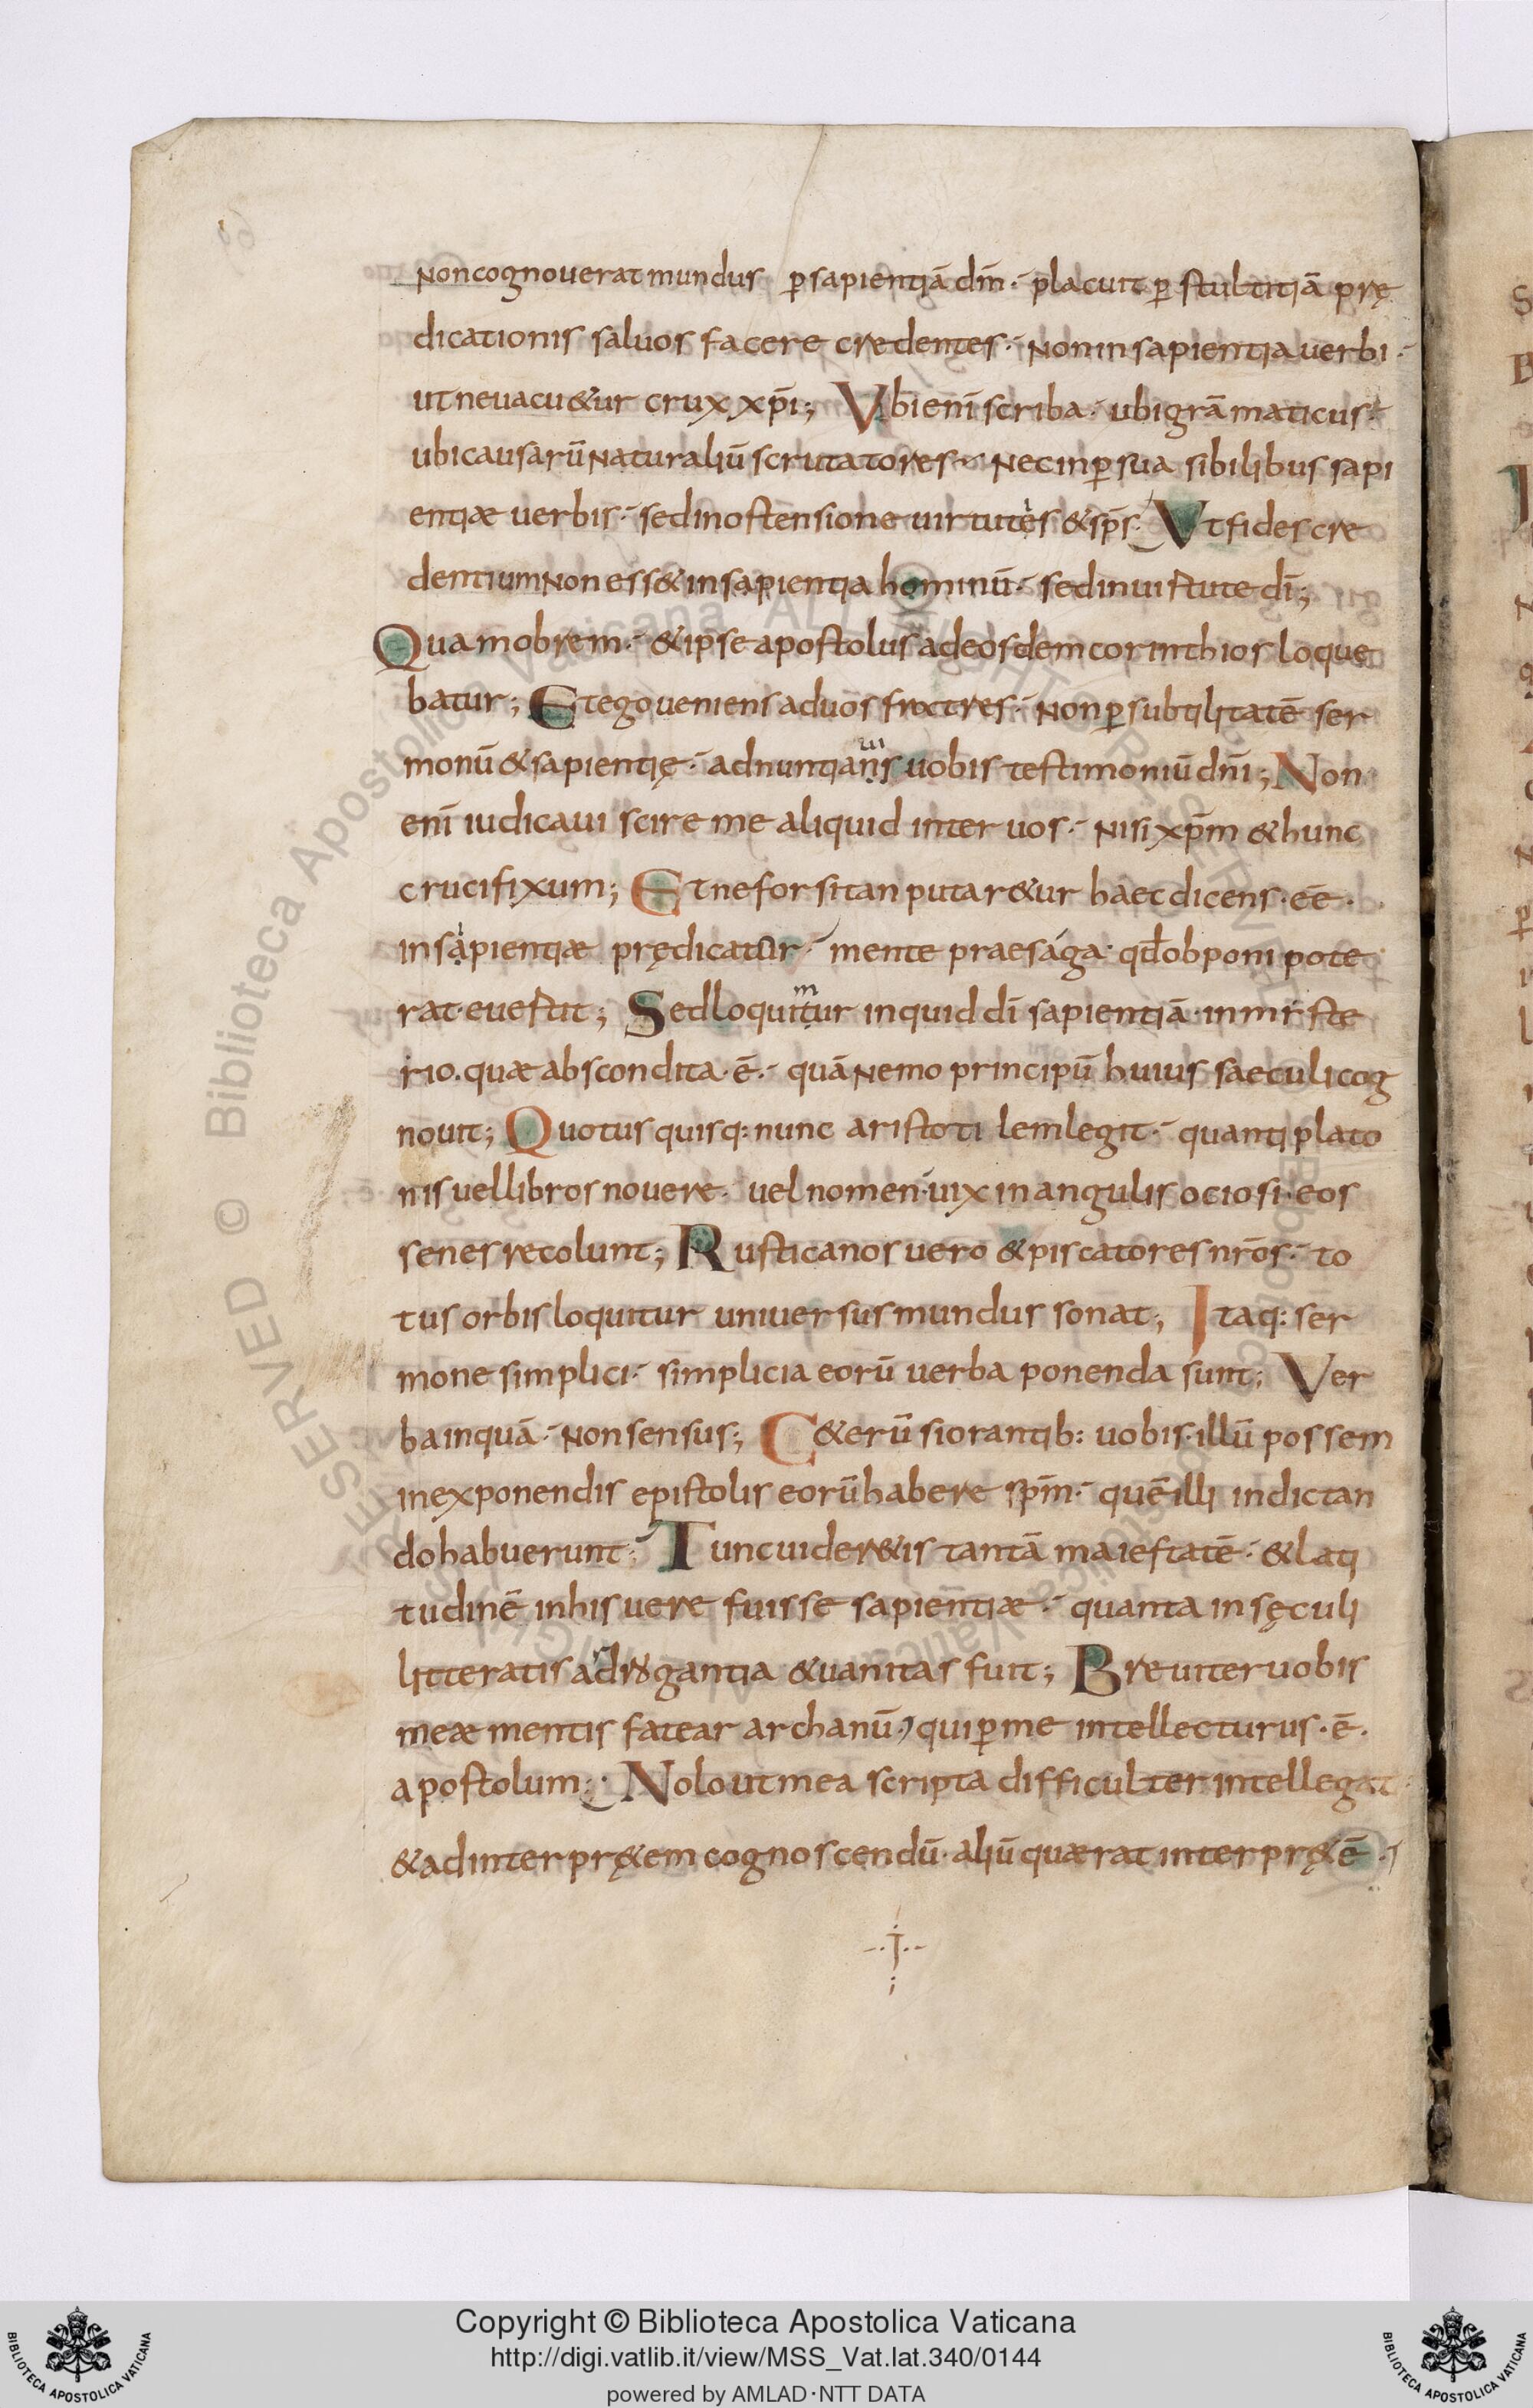 Noncognouerat mundus ꝑsapientiā dm̄ · placuit ꝑ stultitiā prę
dicationis saluos facere credentes · Noninsapientia uerbi ·
utneuacu&ur crux xp̄i; Vbienī scriba · ubigrāmaticus ·
ubicausarūNaturaliū scrutatores · Necinꝑsua sibilibus sapi
entiæ uerbis · sedinostensione uirtutes &sp̄s · Vtfidescre
dentiumNoness&insapientia hominū · sedinuirtute dī;
Quamobrem · &ipse apostolus adeosdemcorinthios loque
batur; Etegoueniens aduos fratres · Nonꝑsubtilitatē ser
monū&sapientię · adnuntians uobis testimoniū dn̄i; Non
enī iudicaui scire me aliquid inter uos · Nisi xp̄m &hunc
crucifixum; Etneforsitan putar&ur haecdicens · eē ·
insapientiæ prędicatur · mente praesága · qđobponi pote
rat · euertit; Sedloquitur inquid dī sapientiā · inmiste
rio. quæ abscondita · ē · quāNemo principū huius saeculi cog
nouit; Quotus quisq: nunc aristoti lemlegit · quanti plato
nis uellibros nouere · uel nomen · uix in angulis ociosi · eos
senes recolunt; Rusticanos uero &piscatores nr̄os · to
tus orbis loquitur uniuersus mundus sonat; Itaq: ser
mone simplici · simplicia eorū uerba ponenda sunt; Ver
ba inquā · Non sensus; C&erū siorantib: uobis · illū possem
inexponendis epistolis eorū habere sp̄m · quē illi indictan
do habuerunt · Tuncuider&is tantā maiestatē · &lati
tudinē inhis uere fuisse sapientiæ · quanta in sęculi
litteratis adrogantia &uanitas fuit; Breuiter uobis
meæ mentis fatear archanū · quiꝑme intellecturus · ē ·
apostolum; Nolo utmea scripta difficulter intellegat
&adinterpr&em cognoscendū · aliū quærat interpr&ē ·
Copyright © Biblioteca Apostolica Vaticana
http://digi.vatlib.it/view/MSS_Vat.lat.340/0144
powered by AMLAD·NTT DATA